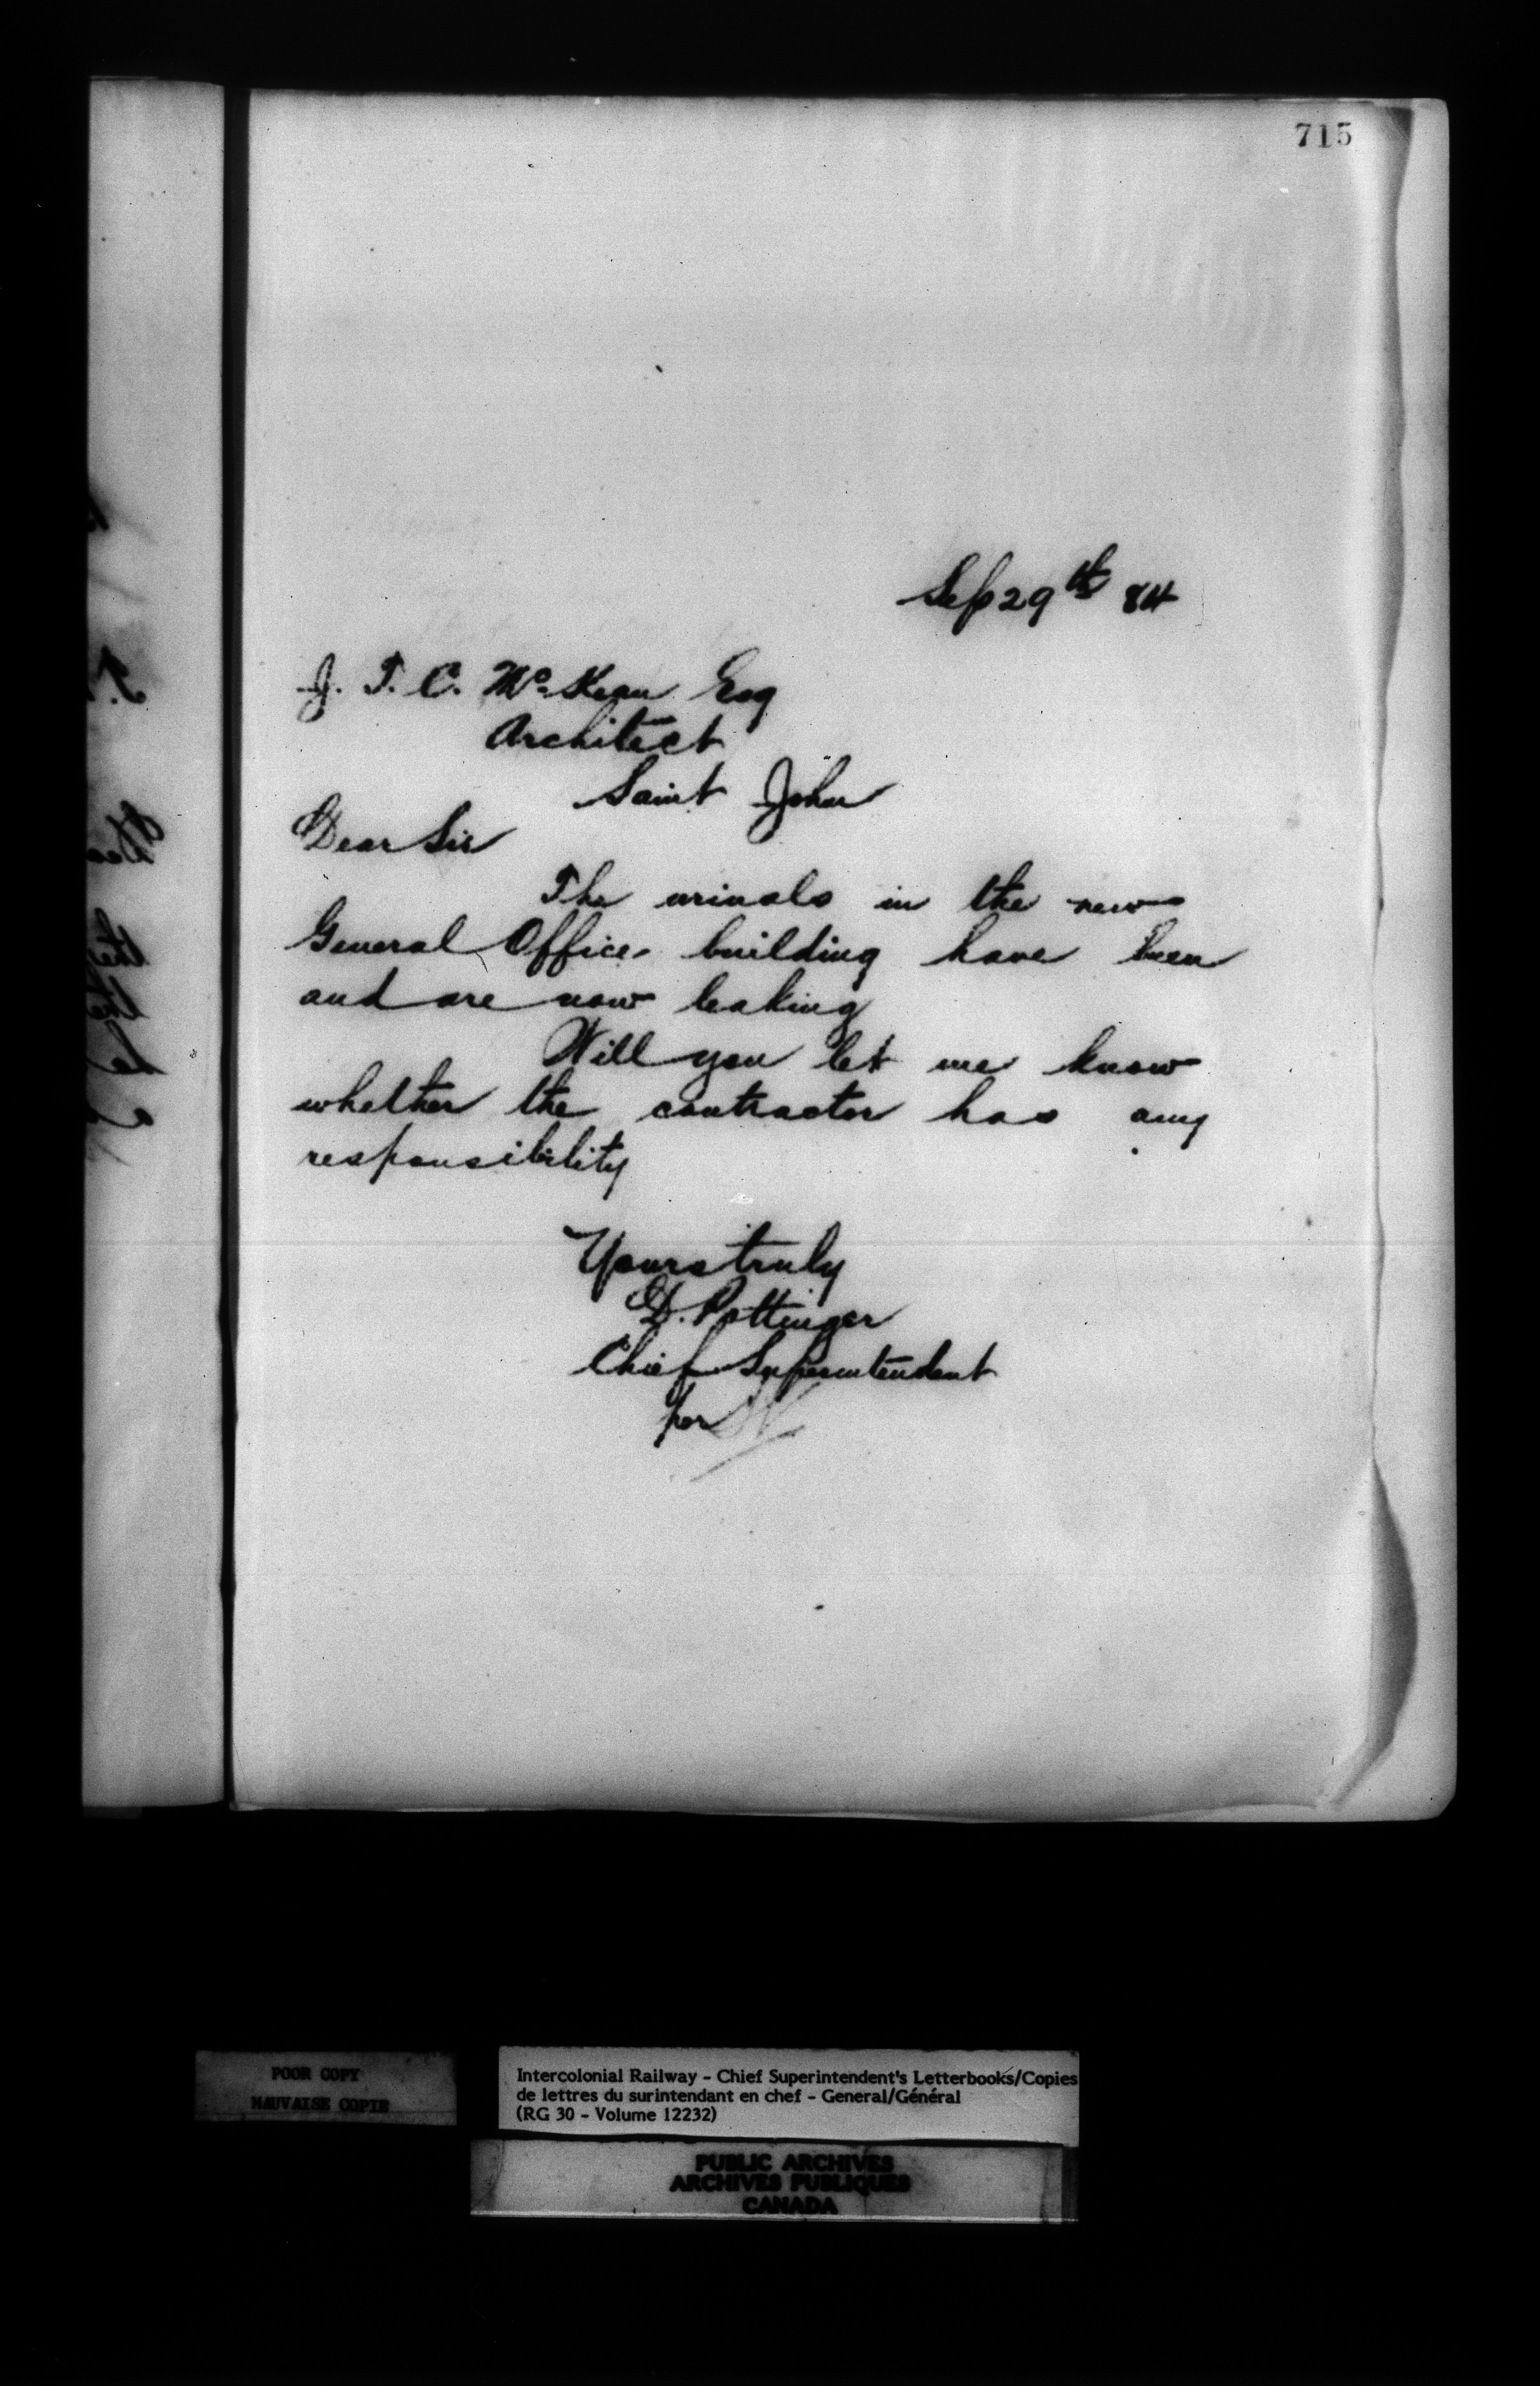 715
Sep 29th 84
J. T. C. McKean Esq
Architect
Saint John
Dear Sir
The urinals in the new
General Office building have been
and are now leaking
Will you let me know
whether the contractor has any
responsibility
Yours truly
D. Pottinger
Chief Superintendent
per
POOR COPY
MAUVAISE COPIE
Intercolonial Railway - Chief Superintendent's Letterbooks/Copies
de lettres du surintendant en chef - General/Général
(RG 30 - Volume 12232)
PUBLIC ARCHIVES
ARCHIVES PUBLIQUES
CANADA